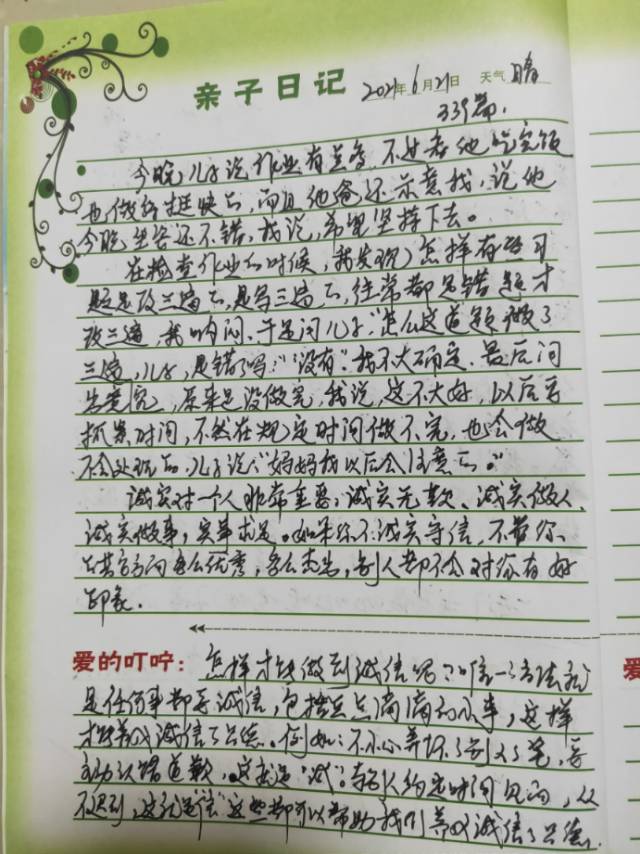 亲子日记 2021年6月21日 天气 晴
339篇.
今晚儿子说作业有点多,不过看他吃完饭
也做得挺快的,而且他爸还示意我,说他
今晚坐姿还不错,我说,希望坚持下去。
在检查作业的时候,我发现怎样有些可
题是改三遍的,是写三遍的,经常都是错题才
改三遍,我纳闷,于是问儿子,“怎么这道题做了
三遍,儿子,是错了吗?”“没有”.我不大确定.最后问
原来是没做完,我说,这不大好,以后要
抓紧时间,不然在规定时间做不完,也会做
不会处理的,儿子说:“妈妈我以后会注意的。”
诚实对一个人非常重要,诚实无欺、诚实做人、
诚实做事,实事求是。如果你不诚实守信,不管你
其它方面多么优秀,多么杰出,别人都不会对你有好
印象.
爱的叮咛: 怎样才能做到诚信呢?唯一方法就
是任何事都要诚信,包括点点滴滴的小事,这样
才能养成诚信的品德。例如:不小心弄坏了别人的笔,要
主动认错道歉,这就是“诚”;与别人约定时间见面,从
不迟到,这就是“信”这些都可以帮助我们养成诚信的品德.